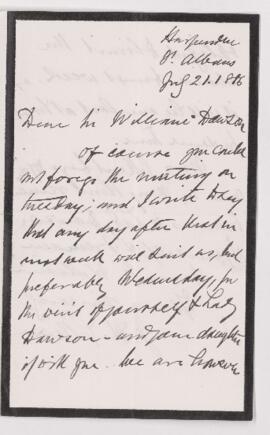 Harpenden
St. Albans
July 21. 186
Dear Sir William Dawson
of course you could
not forego the meeting on
Tuesday; and I write to say
that any day after that in
next week will suit us, but
preferably Wednesday, for
the visit of yourself & Lady
Dawson – and your daughter
if with you. We are however